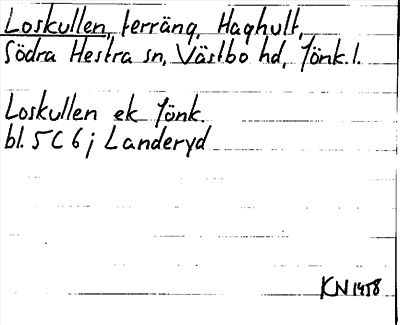 Loskullen, terräng, Haghult,
Södra Hestra sn, Västbo hd, Jönk.l.
Loskullen ek Jönk.
bl. 5C 6j Landeryd
KN 1958